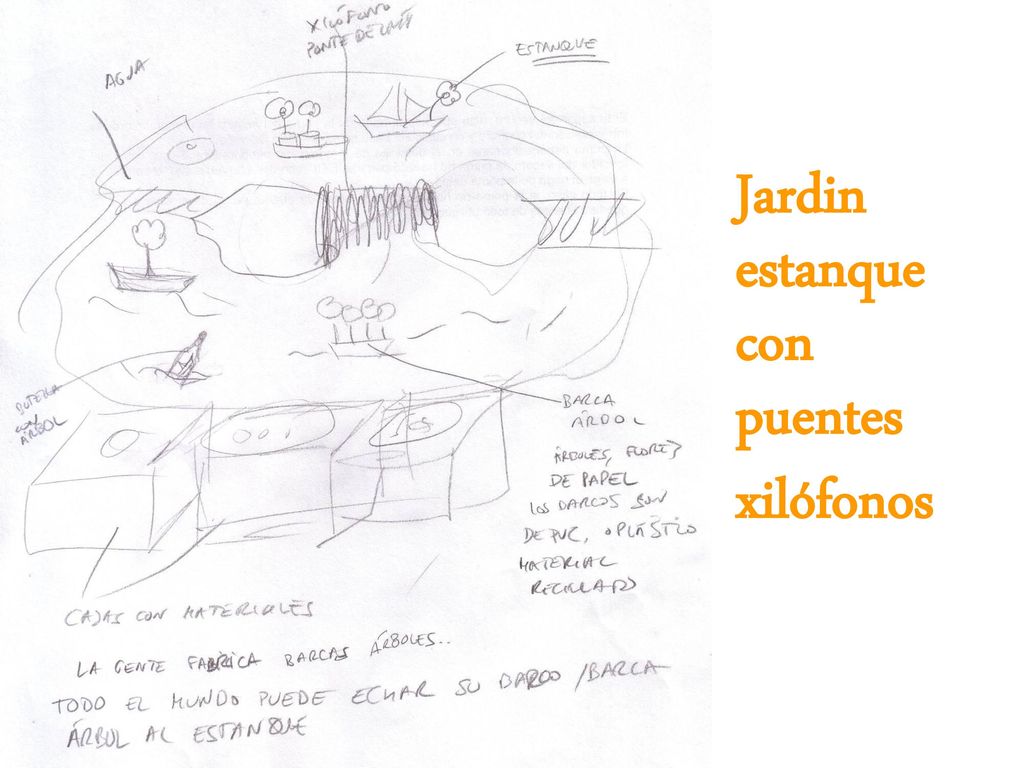 XILÓFONO
PONTE DE
ESTANQUE
AGUA
BOTELLA
CON
ÁRBOL
BARCA
ÁRBOL
ÁRBOLES, FLORES
DE PAPEL
LOS BARCOS SON
DE PVC, O PLÁSTICO
MATERIAL
RECICLADO
CAJAS CON MATERIALES
LA GENTE FABRICA BARCAS ÁRBOLES..
TODO EL MUNDO PUEDE ECHAR SU BARCO / BARCA
ÁRBOL AL ESTANQUE
Jardin
estanque
con
puentes
xilófonos